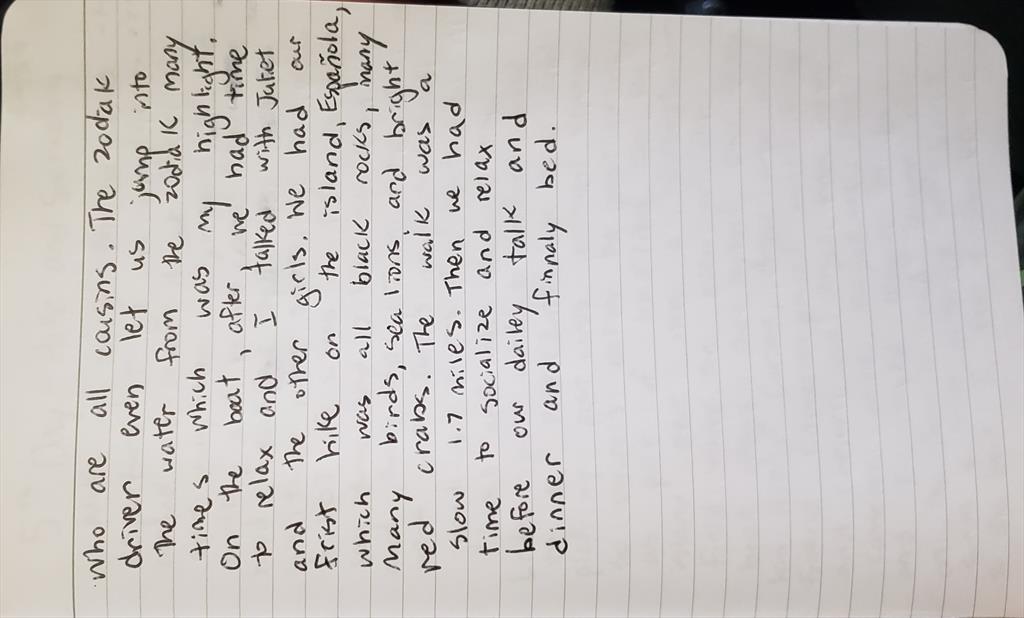 who are all cousins. The zodiak
driver even let us jump into
the water from the zodiak many
times which was my highlight.
On the boat, after we had time
to relax and I talked with Juliet
and the other girls. We had our
frist hike on the island, Española,
which was all black rocks, many
many birds, sea lions and bright
red crabs. The walk was a
slow 1.7 miles. Then we had
time to socialize and relax
before our dailey talk and
dinner and finnaly bed.